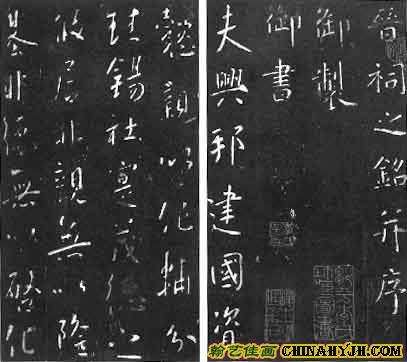 晉祠之銘并序
御製
御書
夫興邦建國資
懿親以作輔分
珪錫社寔茂德之
攸居非親無以隆
基非德無以啓化
翰艺佳画 CHINAHYJH.COM